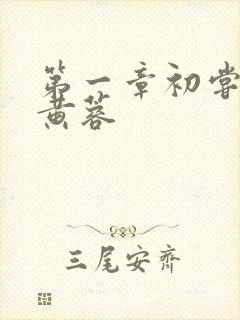 第一章初尝
黄蓉
三尾安齐